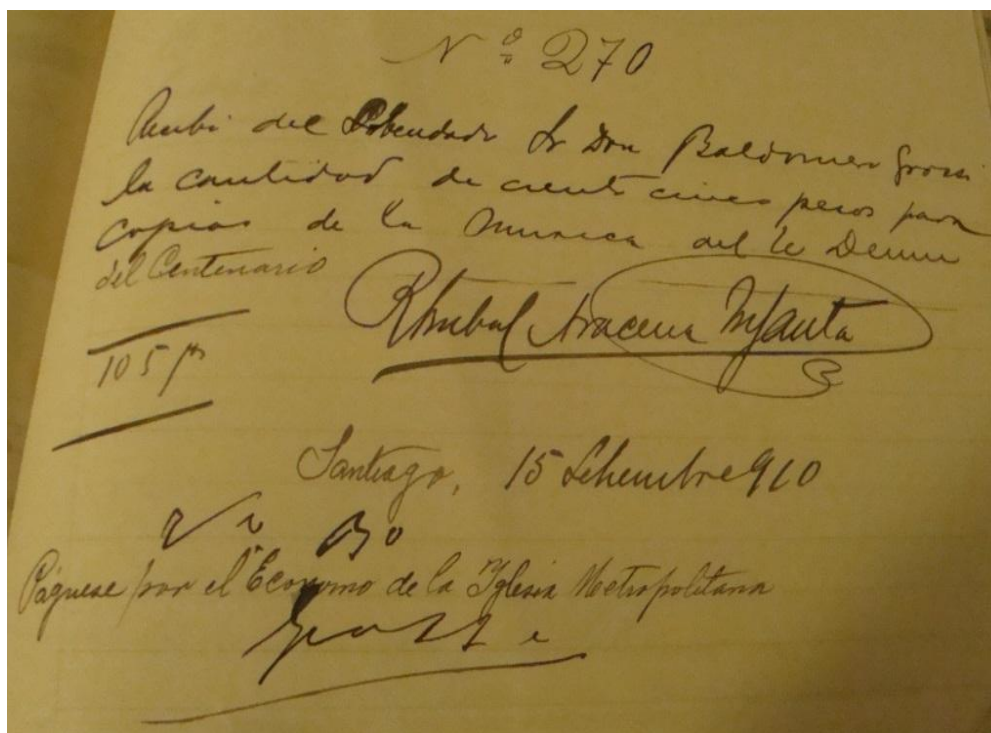 Nº 270
Recibi del Prebendado Sr Don Baldomero Grossi
la cantidad de ciento cinco pesos para
copias de la musica del Te Deum
del Centenario
Anibal Aracena Infanta
105 ps
Santiago, 15 Setiembre 910
Vº Bº
Páguese por el Ecónomo de la Iglesia Metropolitana
Grossi